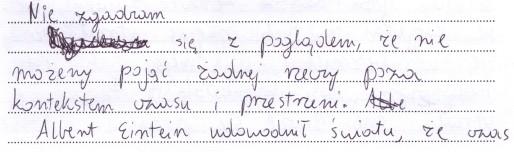 Nie zgadzam
się z poglądem, że nie
możemy pojąć żadnej rzeczy poza
kontekstem czasu i przestrzeni.
Albert Eintein udowodnił światu, że czas